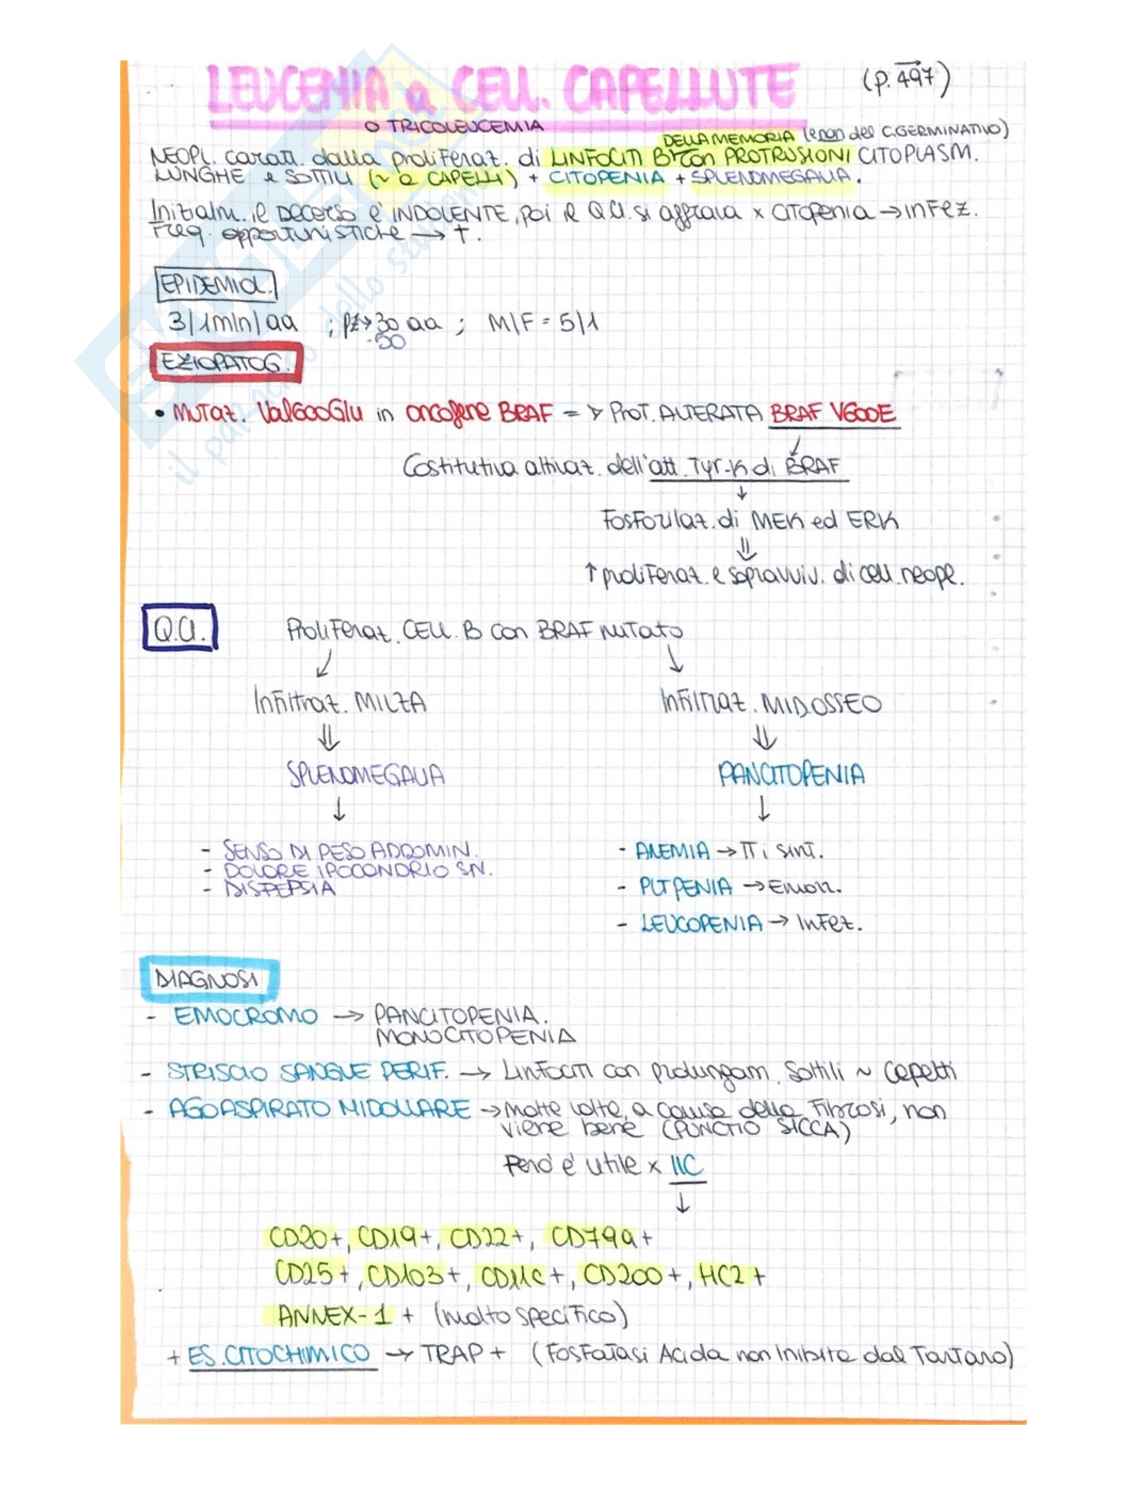 LEUCEMIA a CELL. CAPELLUTE (p. 497)
O TRICOLEUCEMIA
DELLA MEMORIA (e non del C. GERMINATIVO)
NEOPL. caratt. dalla proliferat. di LINFOCITI B con PROTRUSIONI CITOPLASM.
LUNGHE e SOTTILI (~ a CAPELLI) + CITOPENIA + SPLENOMEGALIA.
Inizialm. il DECORSO è INDOLENTE, poi il Q.Cl. si aggrava x CITOPENIA → INFEZ.
Freq. opportunistiche → †.
EPIDEMIOL.
3/1mln/aa ; pz → 30 aa ; M/F = 5/1
-50
EZIOPATOG.
• MUTAZ. Val600Glu in oncogene BRAF => PROT. ALTERATA BRAF V600E
Costitutiva attivaz. dell'att. Tyr-K di BRAF
↓
FOSFORILAZ. di MEK ed ERK
⇓
↑ proliferaz. e sopravviv. di cell. neopl.
Q.Cl. Proliferaz. CELL. B con BRAF MUTATO
Infiltraz. MILZA Infiltraz. MID.OSSEO
⇓ ⇓
SPLENOMEGALIA PANCITOPENIA
↓ ↓
- SENSO DI PESO ADDOMIN. - ANEMIA → TT i SINT.
- DOLORE IPOCONDRIO SN.
- DISPEPSIA - PLTPENIA → Emorr.
- LEUCOPENIA → INFEZ.
DIAGNOSI
- EMOCROMO → PANCITOPENIA.
MONOCITOPENIA
- STRISCIO SANGUE PERIF. → LINFOCITI con prolungam. Sottili ~ Capelli
- AGOASPIRATO MIDOLLARE → Molte volte, a causa della Fibrosi, non
viene bene (PUNCTIO SICCA)
Però è utile x IIC
↓
CD20+, CD19+, CD22+, CD79a+
CD25+, CD103+, CD11c+, CD200+, HC2+
ANNEX-1 + (molto specifico)
+ ES. CITOCHIMICO → TRAP + (Fosfatasi Acida non Inibita dal Tartaro)
il dello